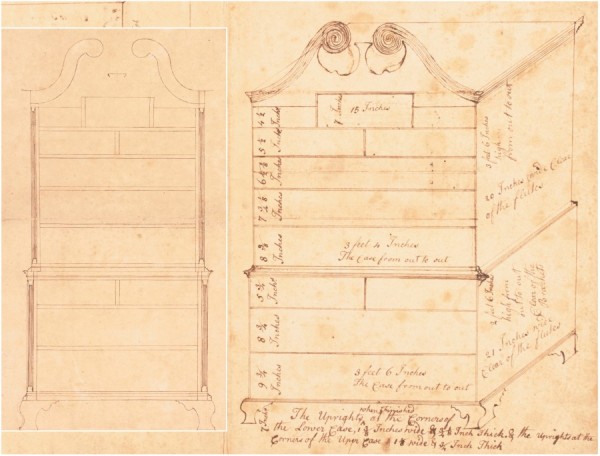 15 Inches
4 3/4 Inches
7 Inches
5 1/2 Inches
6 1/2 Inches
7 1/2 Inches
8 3/4 Inches
3 feet 4 Inches
The Case from out to out
3 feet 6 Inches
high
from out to out
20 Inches Case Clear
of the flutes
5 3/4 Inchs
8 1/4 Inches
9 3/4 Inches
3 feet 6 Inches
The Case from out to out
2 feet 6 Inches
high from
out to out
Clear of the
Brackets
21 Inches wide
Clear of the flutes
7 Inchs
when finished
The Uprights at the Corners of
the Lower Case, 1 Inches wide & Inch Thick, & the Uprights at the
Corners of the Uppr Case wide & Inch Thick